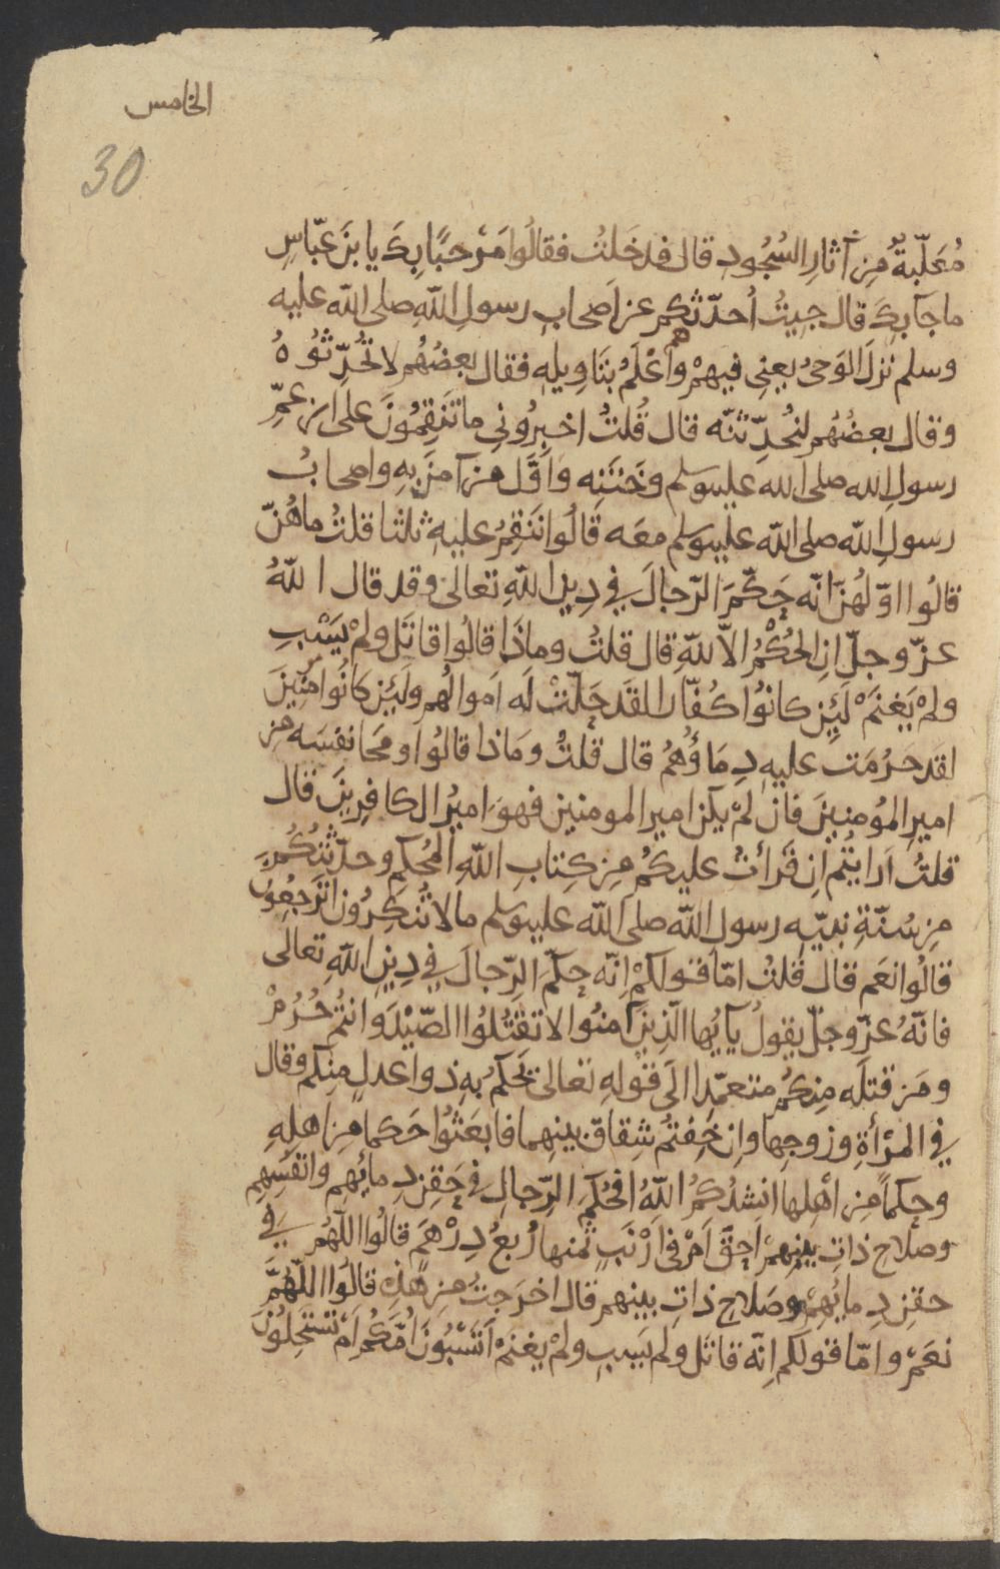 الخامس
30
مُعَلّبةٌ مِن آثارِ السُجُودِ قال فدخَلتُ فقالُوا مَرْحبًا بِكَ يا بنَ عبّاسٍ
ما جآ بِكَ قال جِيتُ أُحدّثكم عن اَصحابِ رسولِ اللّهِ صلى اللّه عليه
وسلم نزلَ الوَحىُ يعنِى فيهمْ وهم أعْلَمُ بتَاوِيلهِ فقال بعضُهُم لا تُحُدِّثُوهُ
وقال بعضُهُم لنُحدِّثنّه قال قُلتُ اخبِرُونِي ما تَنقِمُونَ على ابن عمِّ
رسولِ الله صلى الله عليه وسلم وخَتَنِه واَوّل من آمَنَ بهِ واصحابُ
رسولِ اللّه صلى اللّه عليه وسلم معَه قالُوا نَنقِمُ عليهِ ثلثا قلتُ ما هُنّ
قالُوا اوّلهُنّ انّه حَكّمَ الرّجالَ في دِينِ اللّهِ تعالى وقد قال اللّهُ
عزّ وجلّ اِنِ الحُكْمُ الاّ للّهِ قال قلتُ وماذَا قالُوا قاتَل ولمْ يَسْبِ
ولمْ يَغنَمْ لَئِن كانوُا كُفّارا لقد حَلّتْ لَه اَموالُهم ولَئِن كانُوا مُومِنِينَ
لقد حَرُمَت عليهِ دِمَاؤُهُم قال قلتُ ومَاذا قالُوا ومَحَا نفسَه من
اميرِ المُومنِينَ فان لمْ يكن امير المومنين فهوَ اميرُ الكافِرِينَ قال
قلتُ اَرايتُم اِن قَرأتُ عليكُم مِن كِتابِ اللّهِ المُحكَمِ وحدّثتُكُم
مِن سُنّةِ نبيّه رسولِ اللّه صلى اللّه عليه وسلم ما لا تُنكِرُون اَترجِعُونَ
قالُوا نعَم قال قلتُ امّا قولكمْ اِنّه حكّمَ الرّجالَ في دِينِ اللّهِ تعالى
فانّهُ عزّ وجلّ يقولُ يآيُها الّذِينَ آمنُوا لا تقتُلُوا الصّيْدَ وانتُم حُرُمْ
ومَن قتلَه مِنكُم متعمّدا الَى قولهِ تعالى يَحكُمُ بهِ ذوا عدلٍ مِنكم وقال
في المرْأةِ وزوجِها واِن خِفتُم شِقاقَ بينِهما فابعَثُوا حَكما مِن اهلِهِ
وحكماً مِن أهلِها انشدُكمُ اللّهَ افحُكمُ الرّجالِ في حَقنِ دِمائِهم وانفُسِهِم
وصلاحِ ذاتِ بينِهِمْ اَحقّ اَمْ في اَرْنَبٍ ثمنها رُبعُ دِرْهَمٍ قالُوا اللّهُم في
حقنِ دِمائِهِمْ وصَلاحِ ذاتِ بينهم قال اخرَجتُ مِن هذِه قالُوا اللّهُمّ
نعَمْ وامّا قولكم اِنّه قاتَل ولم يَسبِ ولمْ يغنمْ اَتَسْبُونَ اُمّكُم اَمْ تَستَحِلُّونَ